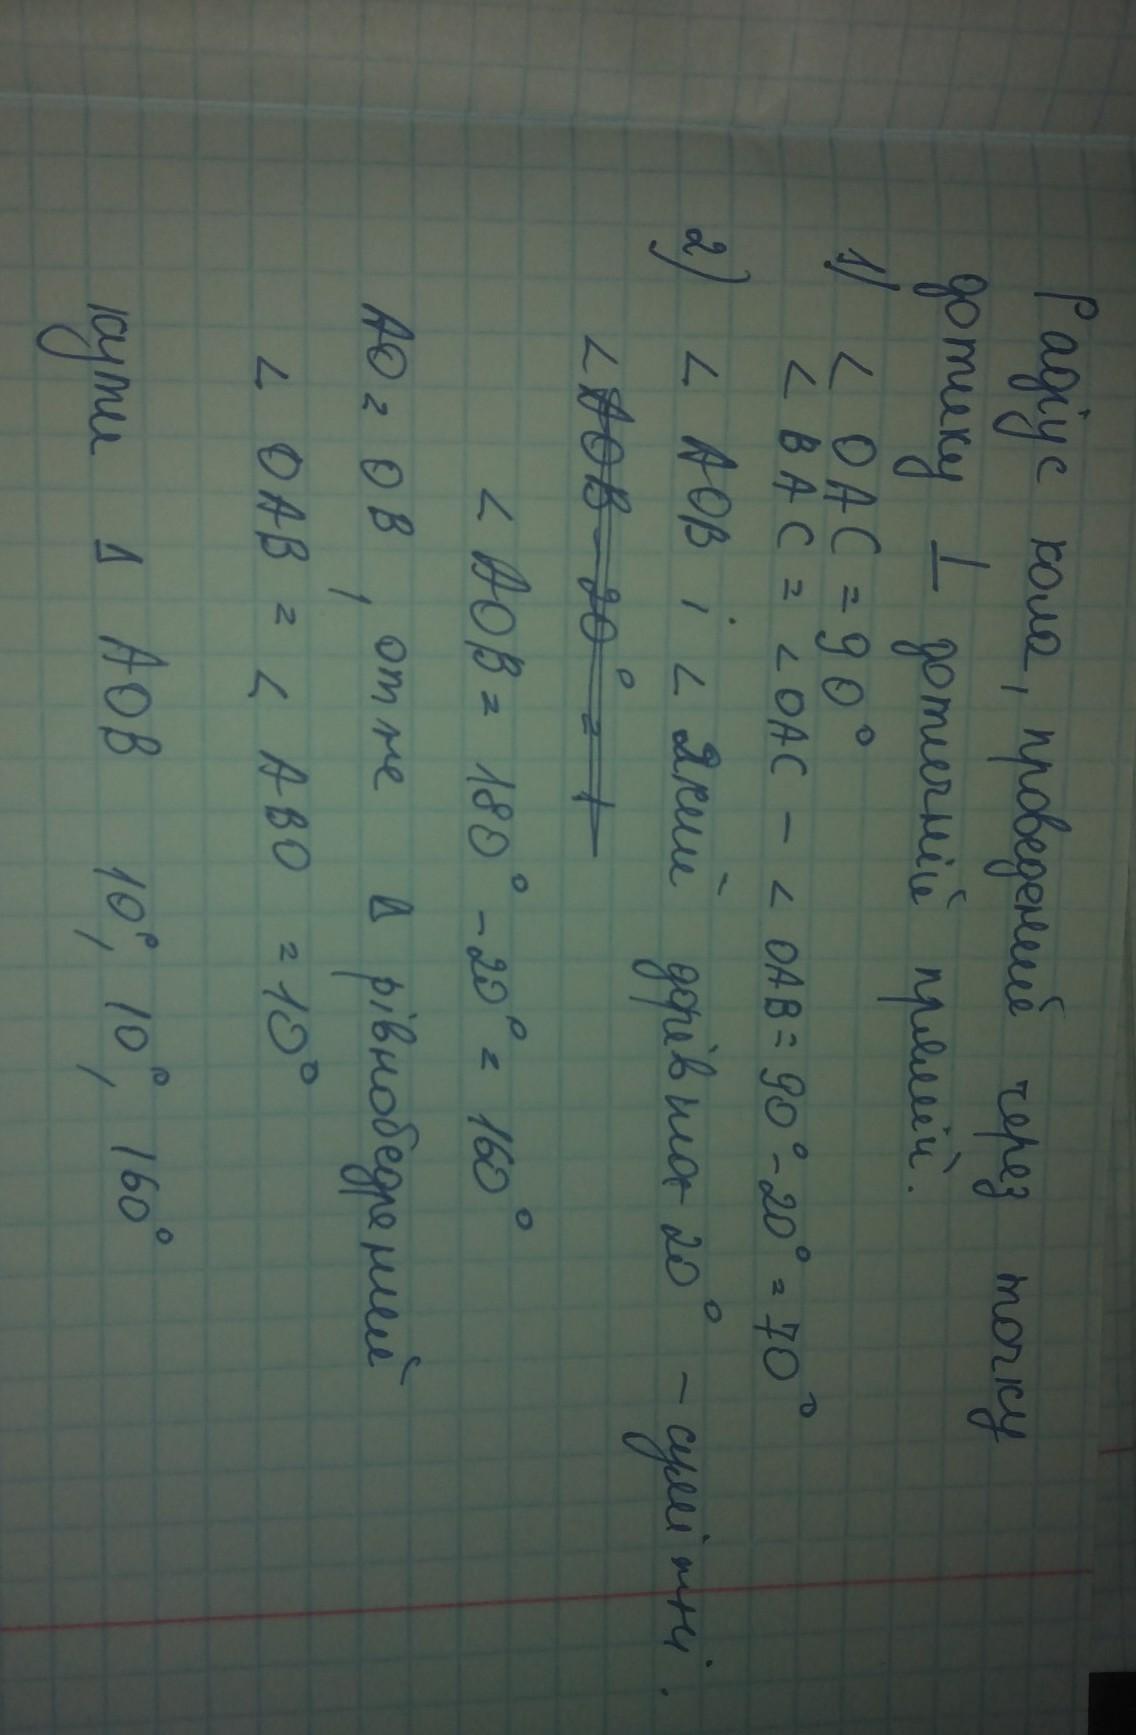 Радіус кола, проведений через точку
дотику ⊥ дотичній прямій.
1) < OAC = 90°
< BAC = < OAC - < OAB = 90° - 20° = 70°
2) < AOB і < який дорівнює 20° - суміжні.
< AOB - 20° =
< AOB = 180° - 20° = 160°
AO = OB, отже Δ рівнобедрений
< OAB = < ABO = 10°
кути Δ AOB 10°, 10°, 160°